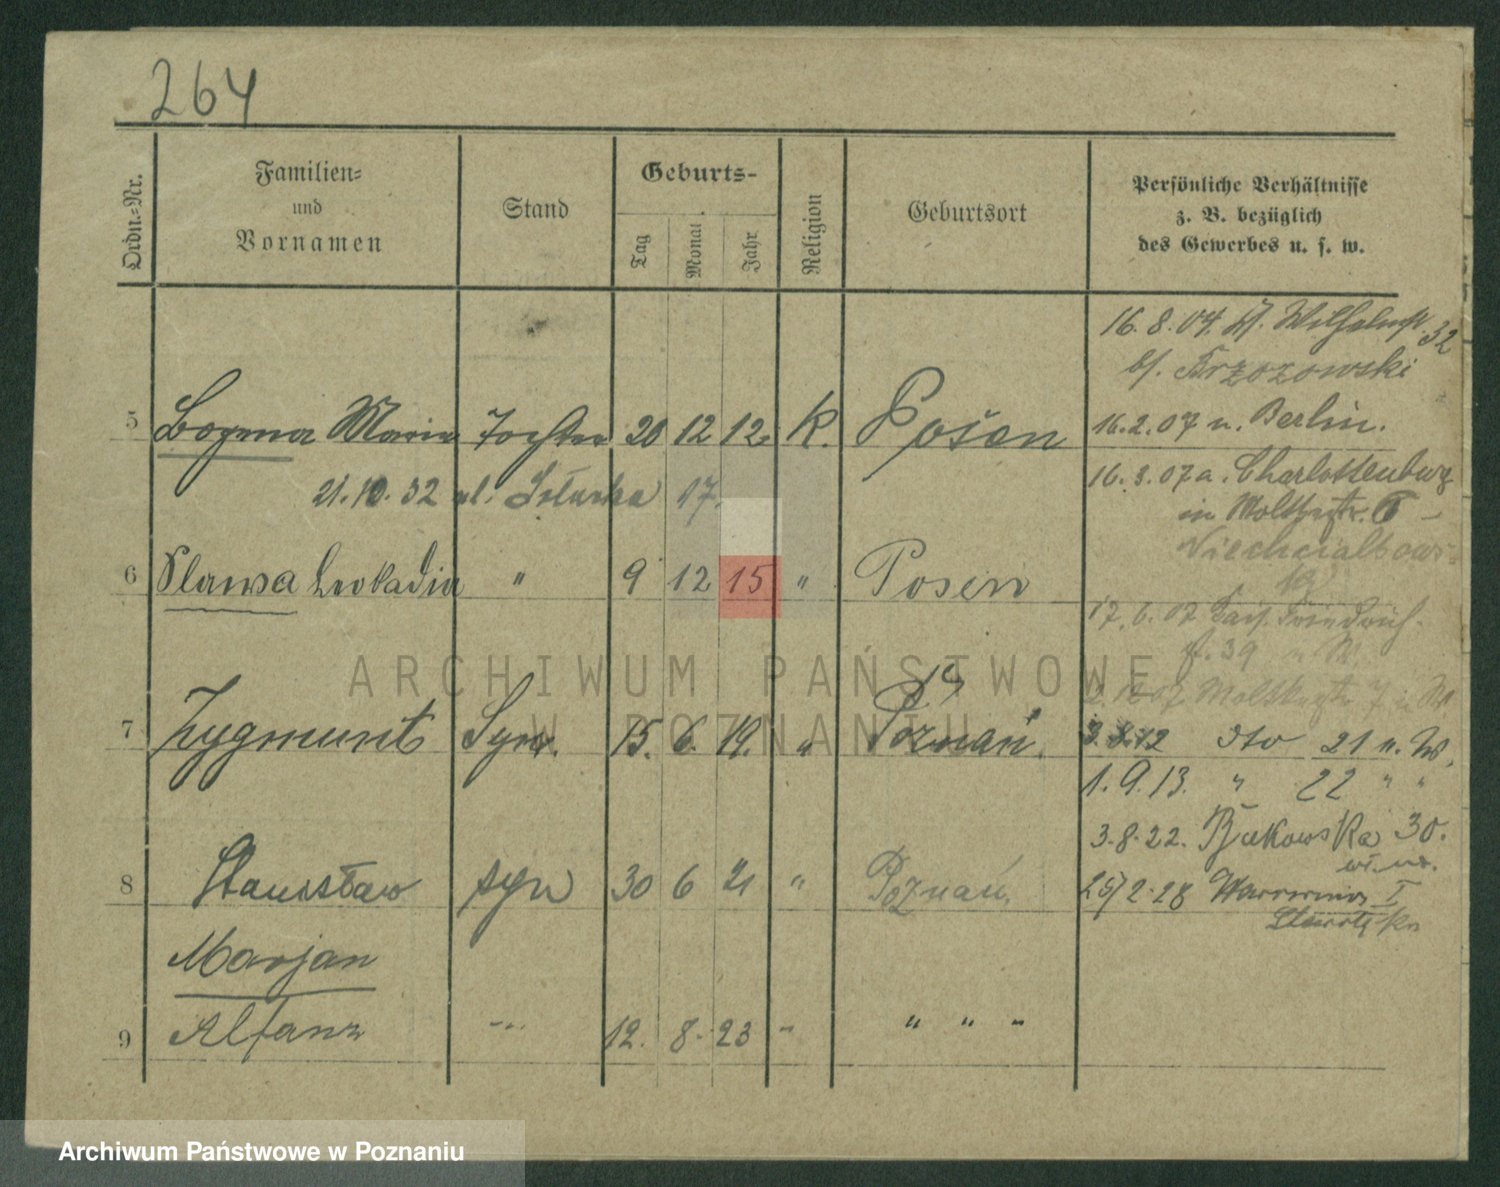 264
Ordn.-Nr.
Familien-
und
Vornamen
Stand
Geburts-
Tag
Monat
Jahr
Religion
Geburtsort
Persönliche Verhältnisse
z. B. bezüglich
des Gewerbes u. s. w.
16. 8. 04. Wilhelmstr. 32
b/. Brzozowski
5 Bogena Maria Tochter 20 12 12. K. Posen
16. 2. 07 n. Berlin.
21. 10. 32 ul. 17.
16. 3. 07 a. Charlottenburg
in Moltkestr.
6 Sława Leokadia " 9 12 15 " Posen
17. 6. 07 Friedrich-
39
Moltkestr. 7
7 Zygmunt Syn. 15. 6. 19. " Poznań.
3. 3. 12 dto 21 n. W.
1. 9. 13. " 22 " "
3. 8. 22. Bukowska 30.
8 Stanisław syn 30 6 21 " Poznań.
25/2. 28
Marjan
9 Alfanz -"- 12. 8. 23 " " " "
ARCHIWUM PAŃSTWOWE
W POZNANIU
Archiwum Państwowe w Poznaniu